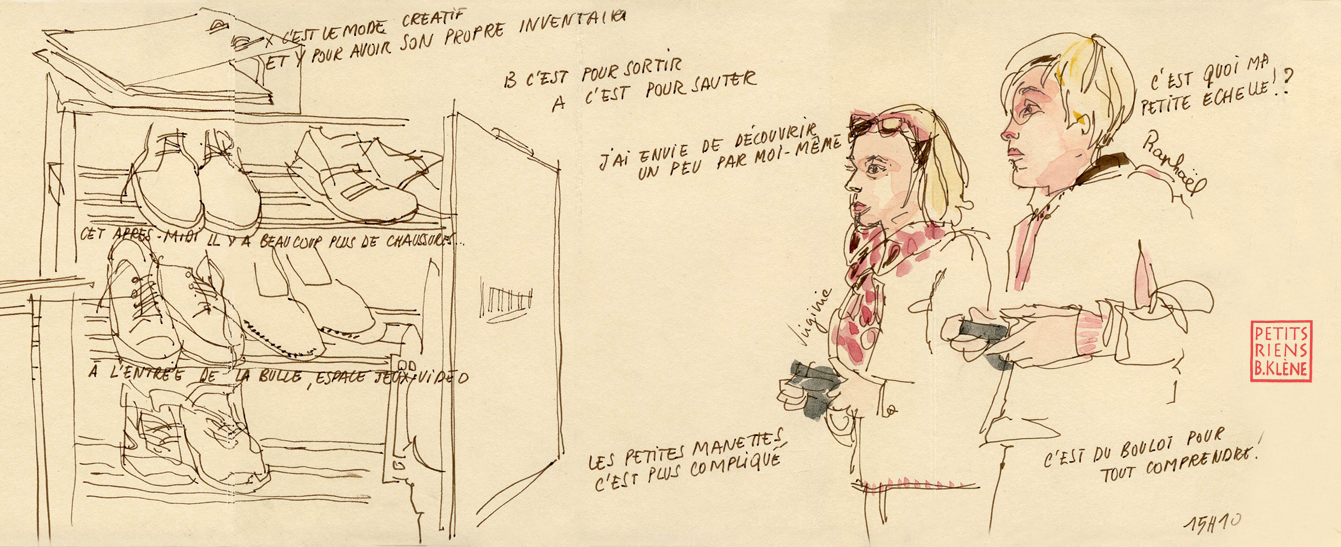 X C'EST LE MODE CREATIF
ET Y POUR AVOIR SON PROPRE INVENTAIRE
B C'EST POUR SORTIR
A C'EST POUR SAUTER
J'AI ENVIE DE DÉCOUVRIR
UN PEU PAR MOI-MÊME
C'EST QUOI MA
PETITE ECHELLE!?
Raphaël
CET APRES-MIDI IL Y A BEAUCOUP PLUS DE CHAUSSURES...
Virginie
À L'ENTRÉE DE LA BULLE, ESPACE JEUX-VIDEO
PETITS
RIENS
B.KLÈNE
LES PETITES MANETTES
C'EST PLUS COMPLIQUÉ
C'EST DU BOULOT POUR
TOUT COMPRENDRE!
15H10